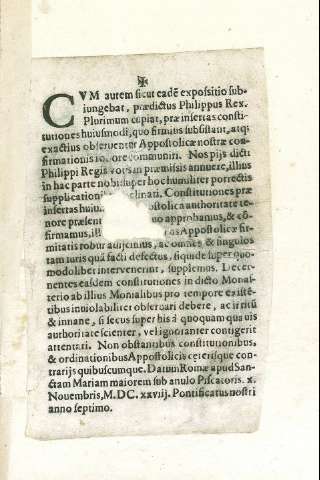 ✠
CVM autem sicut eadē expositio sub-
iungebat, prædictus Philippus Rex.
Plorimum cupiat, præ insertas consti-
tutiones huiusmodi, quo firmius subsistant, atq;
exactius obseruentur Appostolicæ nostræ con-
firmationis robore communiri. Nos pijs dicti
Philippi Regis votis in præmissis annuere, illius
in hac parte nobis super hoc humiliter porrectis
supplication inclinati. Constitutiones præ
insertas huius stolica authoritate te-
nore præsent o approbamus, & cō-
firmamus, ill Appostolicæ fir-
mitatis robur adijcimus, ac omnes & singulos
tam iuris quã facti defectus, siquide super quo-
modolibet interuenerint, supplemus. Decer-
nentes easdem constitutiones in dicto Monas-
terio ab illius Monialibus pro tempore existē-
tibus inuiolabiliter obseruari debere, ac irritū
& innane, si secus super his à quoquam quauis
authoritate scienter, vel ignoranter contigerit
attentari. Non obstantibus constitutionibus,
& ordinationibus Appostolicis ceterisque con-
trarijs quibuscumque. Datum Romæ apud San-
ctam Mariam maiorem sub anulo Piscatoris. x.
Nouembris, M.DC. xxvij. Pontificatus nostri
anno septimo.